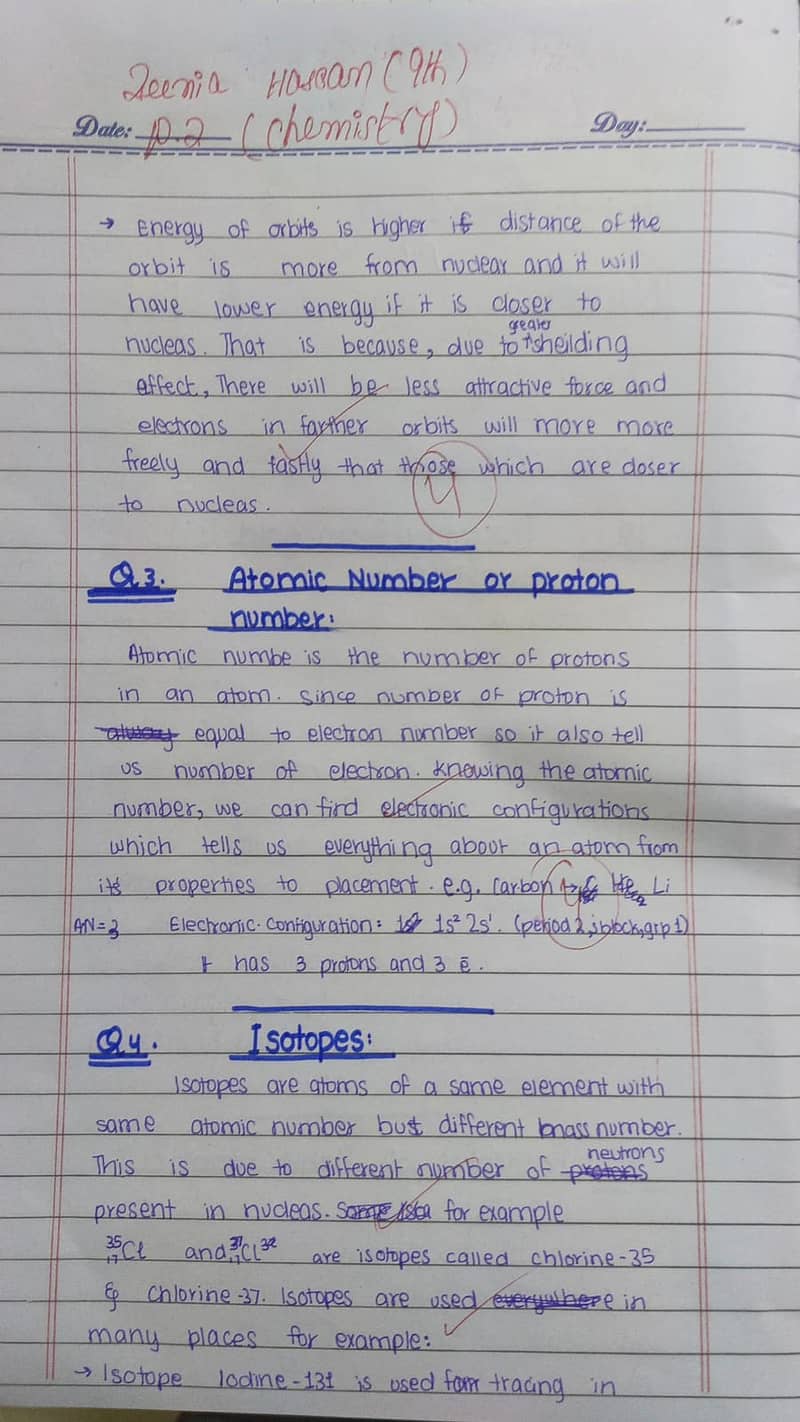 Zeenia Hassan (9th)
Date: P.2 (chemistry) Day:
→ Energy of orbits is higher if distance of the
orbit is more from nuclear and it will
have lower energy if it is closer to
greater
nucleas. That is because, due to sheilding
effect, There will be less attractive force and
electrons in farther orbits will more more
freely and fastly that those which are closer
4
to nucleas.
Q3. Atomic Number or proton
number:
Atomic numbe is the number of protons
in an atom. Since number of proton is
alway equal to electron number so it also tell
us number of electron. Knowing the atomic
number, we can find electronic configurations
which tells us everything about an atom from
its properties to placement. e.g. Carbon Li
AN=3 Electronic Configuration: 1s² 2s¹. (period 2, s block, grp 1)
It has 3 protons and 3 ē.
Q4. Isotopes:
Isotopes are atoms of a same element with
same atomic number but different mass number.
neutrons
This is due to different number of protons
present in nucleas. for example
³⁵₁₇Cl and ³⁷₁₇Cl are isotopes called chlorine-35
& Chlorine-37. Isotopes are used everywhere in
many places for example:
→ Isotope Iodine-131 is used for tracing in